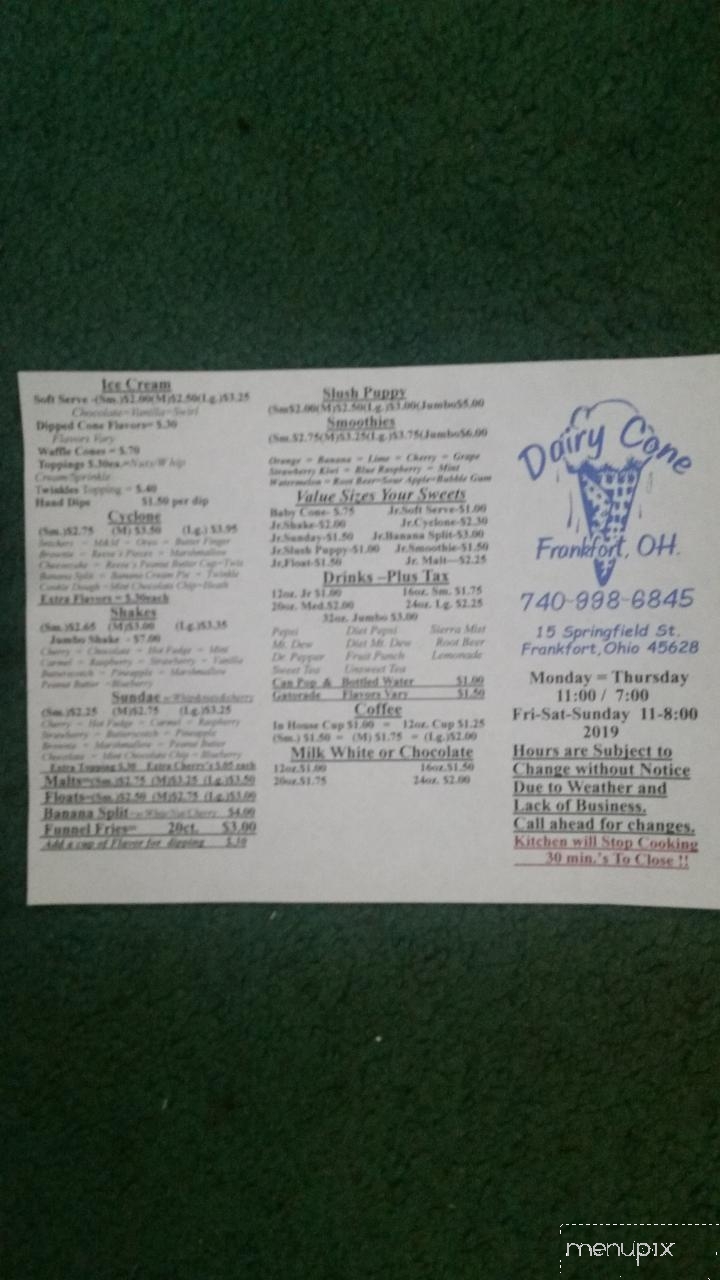 Ice Cream
Soft Serve -(Sm.)$2.00(M)$2.50(Lg.)$3.25
Chocolate=Vanilla=Swirl
Dipped Cone Flavors= $.30
Flavors Vary
Waffle Cones = $.70
Toppings $.30ea.=Nuts/Whip
Cream/Sprinkle
Twinkles Topping = $.40
Hand Dips $1.50 per dip
Cyclone
(Sm.)$2.75 (M) $3.50 (Lg.) $3.95
= M&M = Oreo = Butter Finger
Brownie = Reese's Pieces = Marshmallow
Cheesecake = Reese's Peanut Butter Cup=Twix
Banana Split = Banana Cream Pie = Twinkie
Cookie Dough =Mint Chocolate Chip=Heath
Extra Flavors = $.30each
Shakes
(Sm.)$2.65 (M)$3.00 (Lg.)$3.35
Jumbo Shake - $7.00
Cherry = Chocolate = Hot Fudge = Mint
Carmel = Raspberry = Strawberry = Vanilla
Butterscotch = Pineapple = Marshmallow
Peanut Butter =Blueberry
Sundae =Whip&nuts&cherry
(Sm.)$2.25 (M)$2.75 (Lg.)$3.25
Cherry = Hot Fudge = Carmel = Raspberry
Strawberry = Butterscotch = Pineapple
Brownie = Marshmallow = Peanut Butter
Chocolate = Mint Chocolate Chip = Blueberry
Extra Topping $.30 Extra Cherry's $.05 each
Malts=(Sm.)$2.75 (M)$3.25 (Lg.)$3.50
Floats=(Sm.)$2.50 (M)$2.75 (Lg.)$3.00
Banana Split =Whip/Nut/Cherry $4.00
Funnel Fries= 20ct. $3.00
Add a cup of Flavor for dipping $.30
Slush Puppy
(Sm$2.00(M)$2.50(Lg.)$3.00(Jumbo$5.00
Smoothies
(Sm.$2.75(M)$3.25(Lg.)$3.75(Jumbo$6.00
Orange = Banana = Lime = Cherry = Grape
Strawberry Kiwi = Blue Raspberry = Mint
Watermelon = Root Beer=Sour Apple=Bubble Gum
Value Sizes Your Sweets
Baby Cone- $.75 Jr.Soft Serve-$1.00
Jr.Shake-$2.00 Jr.Cyclone-$2.30
Jr.Sunday-$1.50 Jr.Banana Split-$3.00
Jr.Slush Puppy-$1.00 Jr.Smoothie-$1.50
Jr.Float-$1.50 Jr. Malt—$2.25
Drinks –Plus Tax
12oz. Jr $1.00 16oz. Sm. $1.75
20oz. Med.$2.00 24oz. Lg. $2.25
32oz. Jumbo $3.00
Pepsi Diet Pepsi Sierra Mist
Mt. Dew Diet Mt. Dew Root Beer
Dr. Pepper Fruit Punch Lemonade
Sweet Tea Unsweet Tea
Can Pop & Bottled Water $1.00
Gatorade Flavors Vary $1.50
Coffee
In House Cup $1.00 = 12oz. Cup $1.25
(Sm.) $1.50 = (M) $1.75 = (Lg.)$2.00
Milk White or Chocolate
12oz.$1.00 16oz.$1.50
20oz.$1.75 24oz. $2.00
Dairy Cone
Frankfort, OH.
740-998-6845
15 Springfield St.
Frankfort, Ohio 45628
Monday = Thursday
11:00 / 7:00
Fri-Sat-Sunday 11-8:00
2019
Hours are Subject to
Change without Notice
Due to Weather and
Lack of Business.
Call ahead for changes.
Kitchen will Stop Cooking
30 min.'s To Close !!
menupix